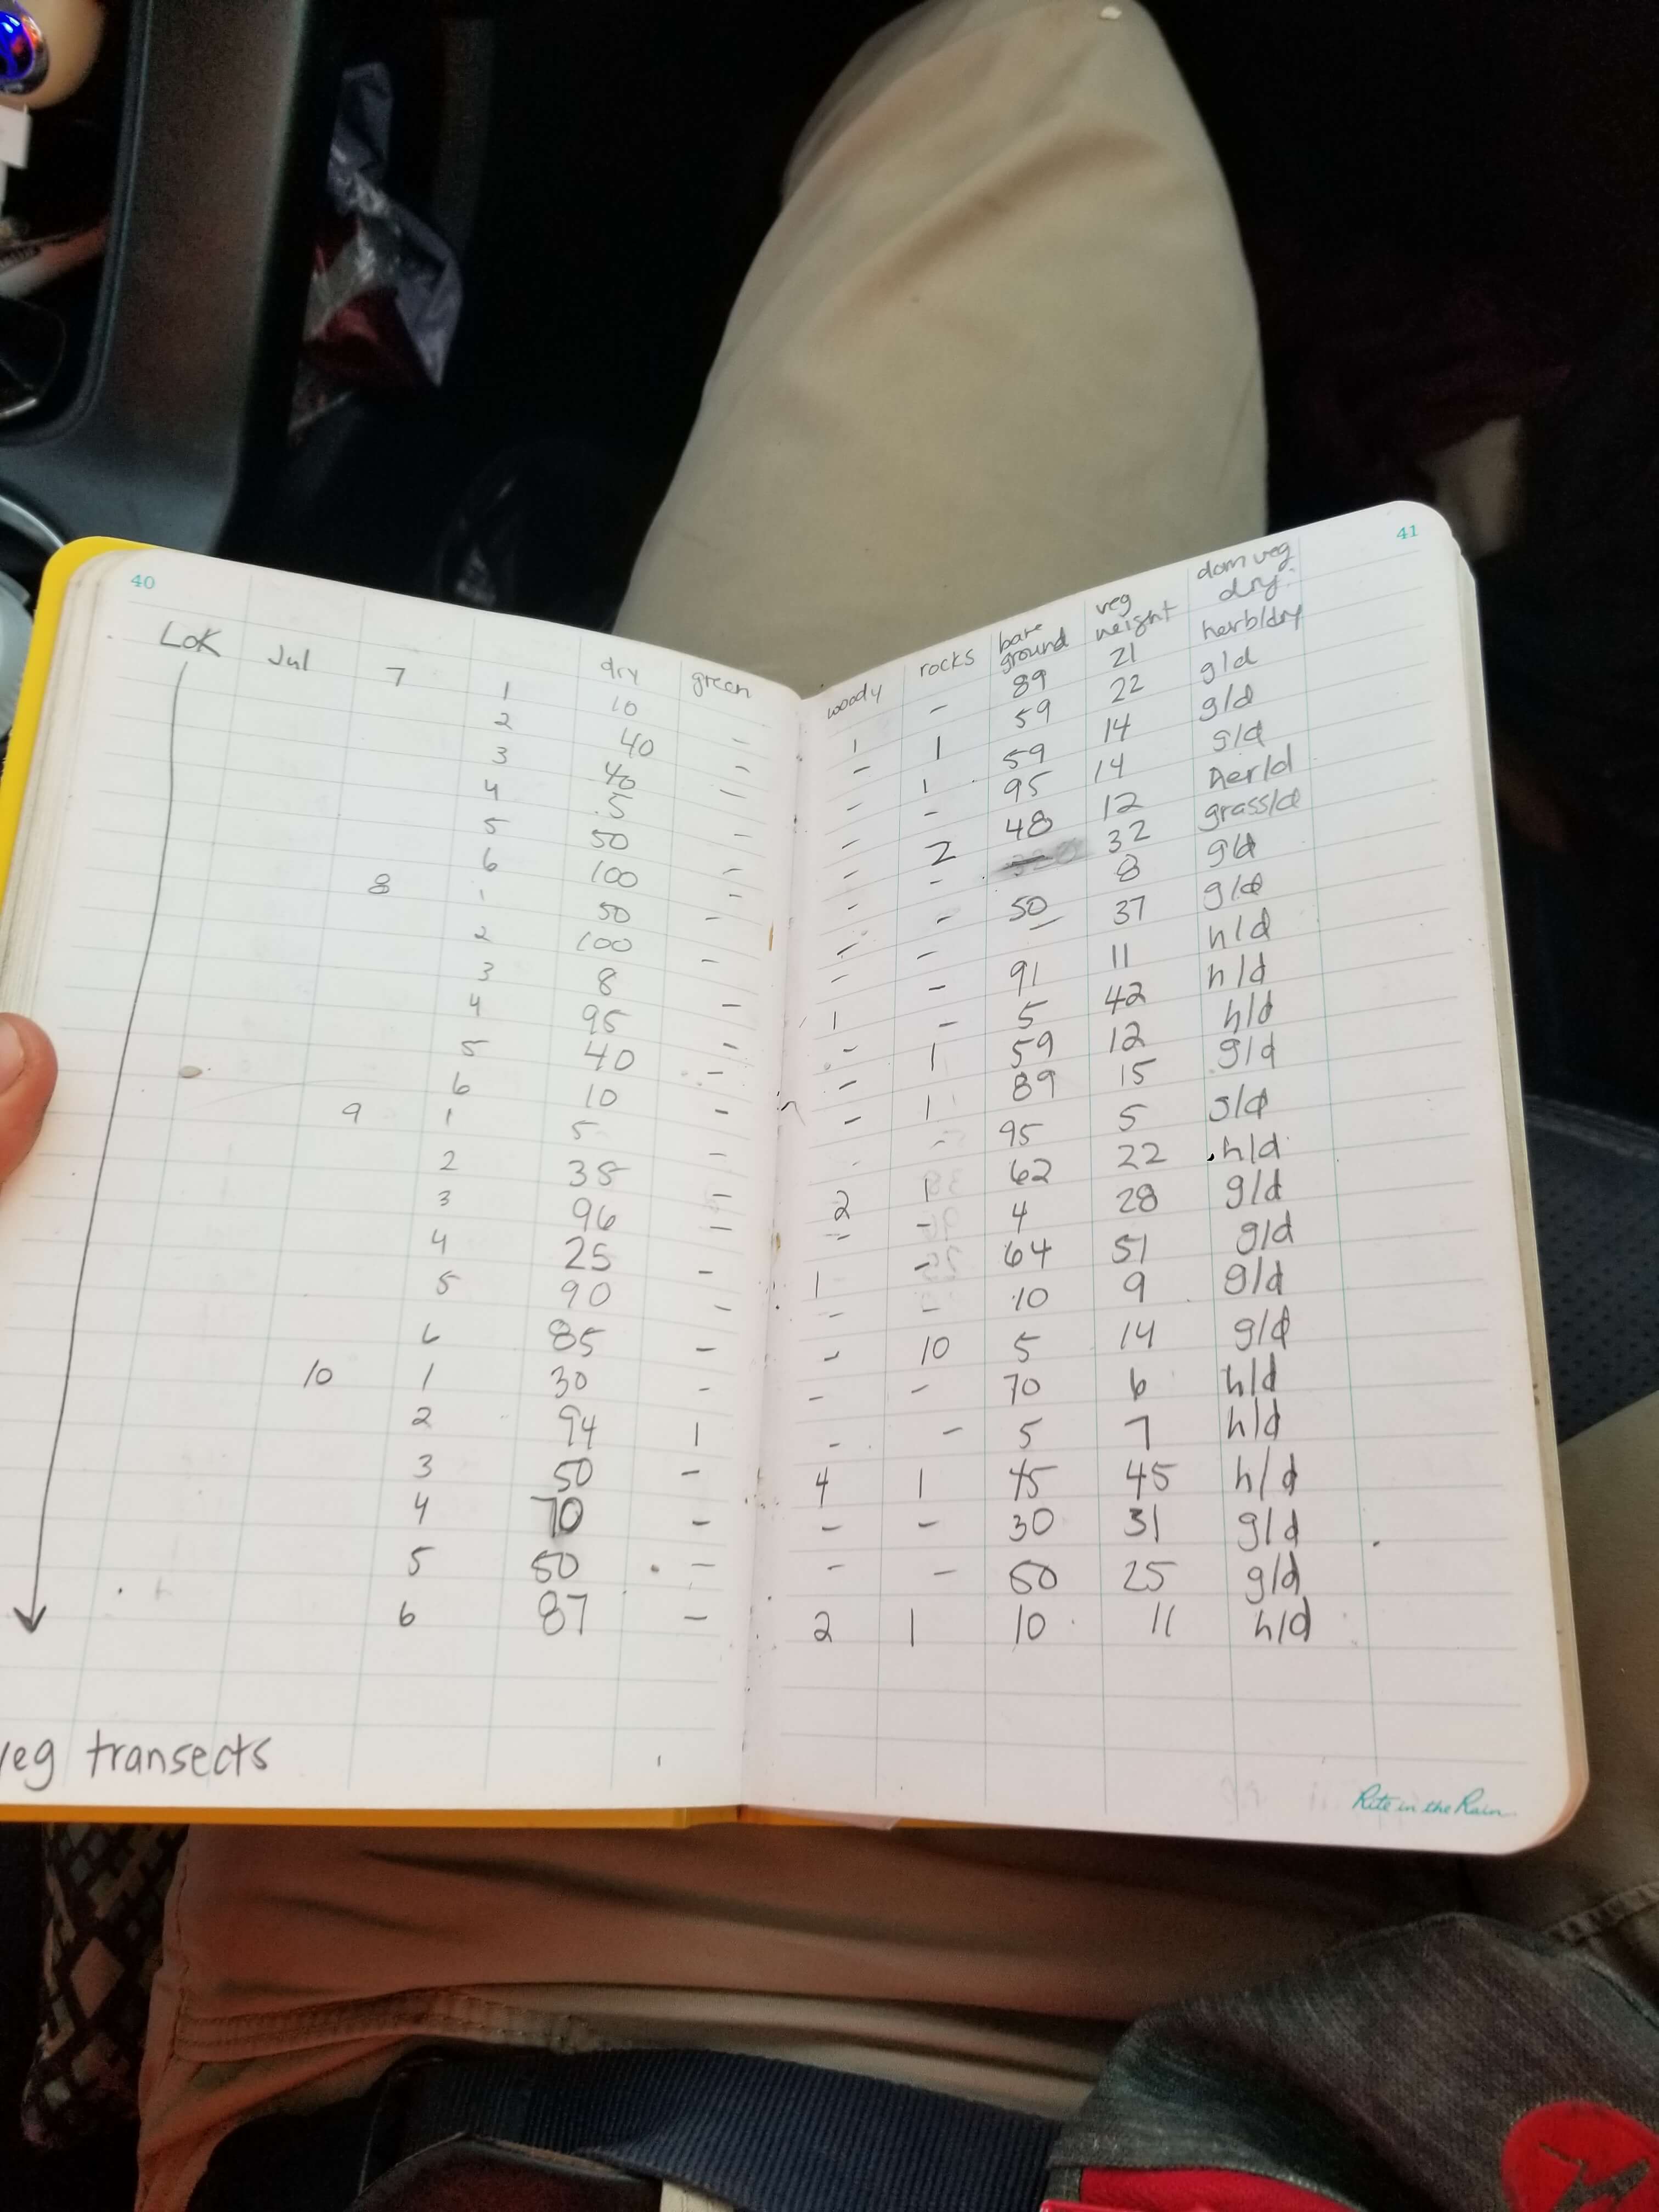 40
LOK Jul 7 dry green
1 10 -
2 40 -
3 40 -
4 5 -
5 50 -
6 100 -
8 1 50 -
2 100 -
3 8 -
4 95 -
5 40 -
6 10 -
9 1 5 -
2 38 -
3 96 -
4 25 -
5 90 -
6 85 -
10 1 30 -
2 94 1
3 50 -
4 70 -
5 50 -
6 87 -
veg transects
41
woody rocks bare ground veg height dom veg dry.
1 - 89 21 herb/dry
- 1 59 22 g/d
- 1 59 14 g/d
- - 95 14 g/d
- 2 48 12 her/d
- - - 32 grass/d
- - 50 8 g/d
- - 37 g/d
1 - 91 11 h/d
- - 5 42 h/d
- 1 59 12 h/d
- 1 89 15 g/d
- - 95 5 g/d
2 1 62 22 h/d
- - 4 28 g/d
1 - 64 51 g/d
- - 10 9 g/d
- 10 5 14 g/d
- - 70 6 h/d
- - 5 7 h/d
4 1 45 45 h/d
- - 30 31 g/d
- - 50 25 g/d
2 1 10 11 h/d
Rite in the Rain